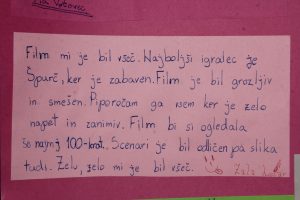 Film mi je bil všeč. Najboljši igralec je
Špurč, ker je zabaven. Film je bil grozljiv
in smešen. Piporočam ga vsem ker je zelo
napet in zanimiv. Film bi si ogledala
še najmnj 100-krat. Scenarij je bil odličen pa slika
tudi. Zelo, zelo mi je bil všeč.